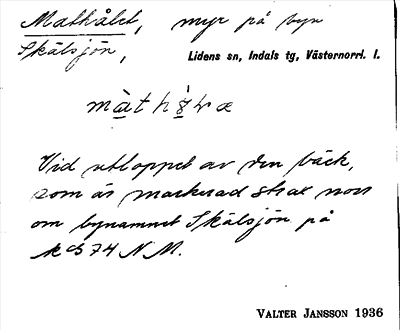 Mathålet, myr på byn
Skälsjön,
Lidens sn, Indals tg, Västernorrl. l.
Vid utloppet av den bäck,
som är markerad strax norr
om bynamnet Skälsjön på
kb 74 N M.
VALTER JANSSON 1936